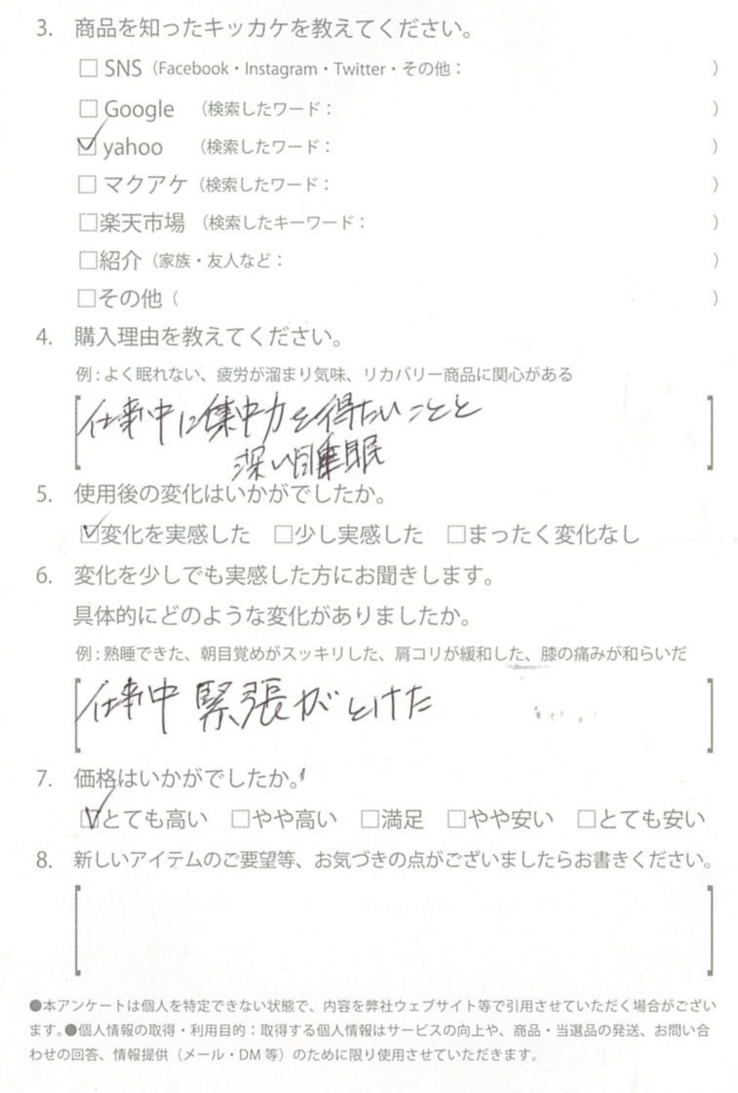 3. 商品を知ったキッカケを教えてください。
□ SNS（Facebook・Instagram・Twitter・その他： ）
□ Google （検索したワード： ）
☑ yahoo （検索したワード： ）
□ マクアケ（検索したワード： ）
□楽天市場 （検索したキーワード： ）
□紹介（家族・友人など： ）
□その他（ ）
4. 購入理由を教えてください。
例：よく眠れない、疲労が溜まり気味、リカバリー商品に関心がある
仕事中に集中力を得たいことと
深い睡眠
5. 使用後の変化はいかがでしたか。
☑変化を実感した □少し実感した □まったく変化なし
6. 変化を少しでも実感した方にお聞きします。
具体的にどのような変化がありましたか。
例：熟睡できた、朝目覚めがスッキリした、肩コリが緩和した、膝の痛みが和らいだ
仕事中 緊張がとけた
7. 価格はいかがでしたか。
☑とても高い □やや高い □満足 □やや安い □とても安い
8. 新しいアイテムのご要望等、お気づきの点がございましたらお書きください。
●本アンケートは個人を特定できない状態で、内容を弊社ウェブサイト等で引用させていただく場合がござい
ます。●個人情報の取得・利用目的：取得する個人情報はサービスの向上や、商品・当選品の発送、お問い合
わせの回答、情報提供（メール・DM 等）のために限り使用させていただきます。